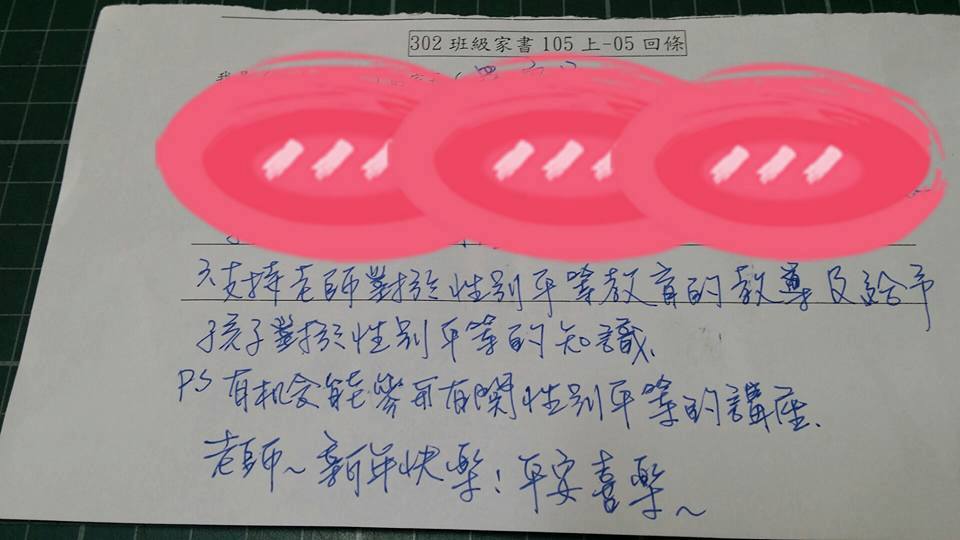 302 班級家書 105 上-05 回條
支持老師對於性別平等教育的教導及給予
孩子對於性別平等的知識、
PS 有机会能舉所有関性別平等的講座、
老師~新年快樂！平安喜樂~